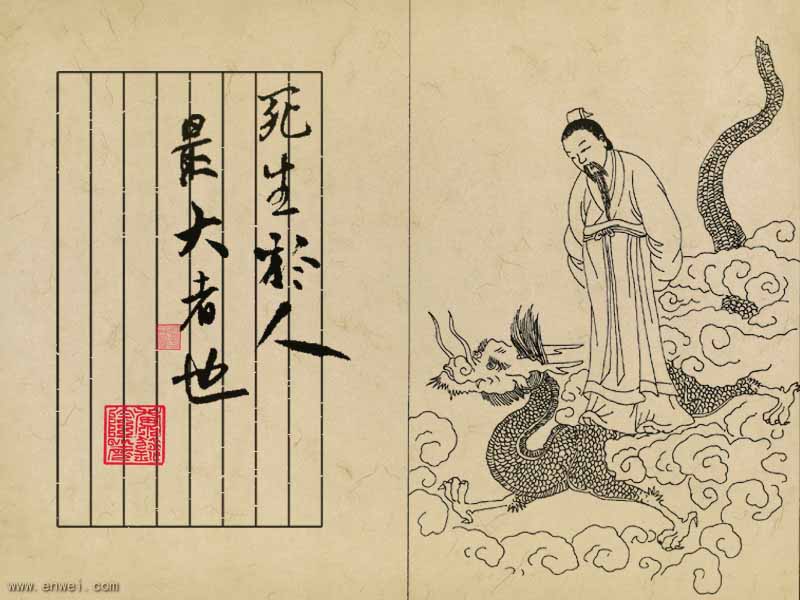 死生於人
最大者也
www.enwei.com